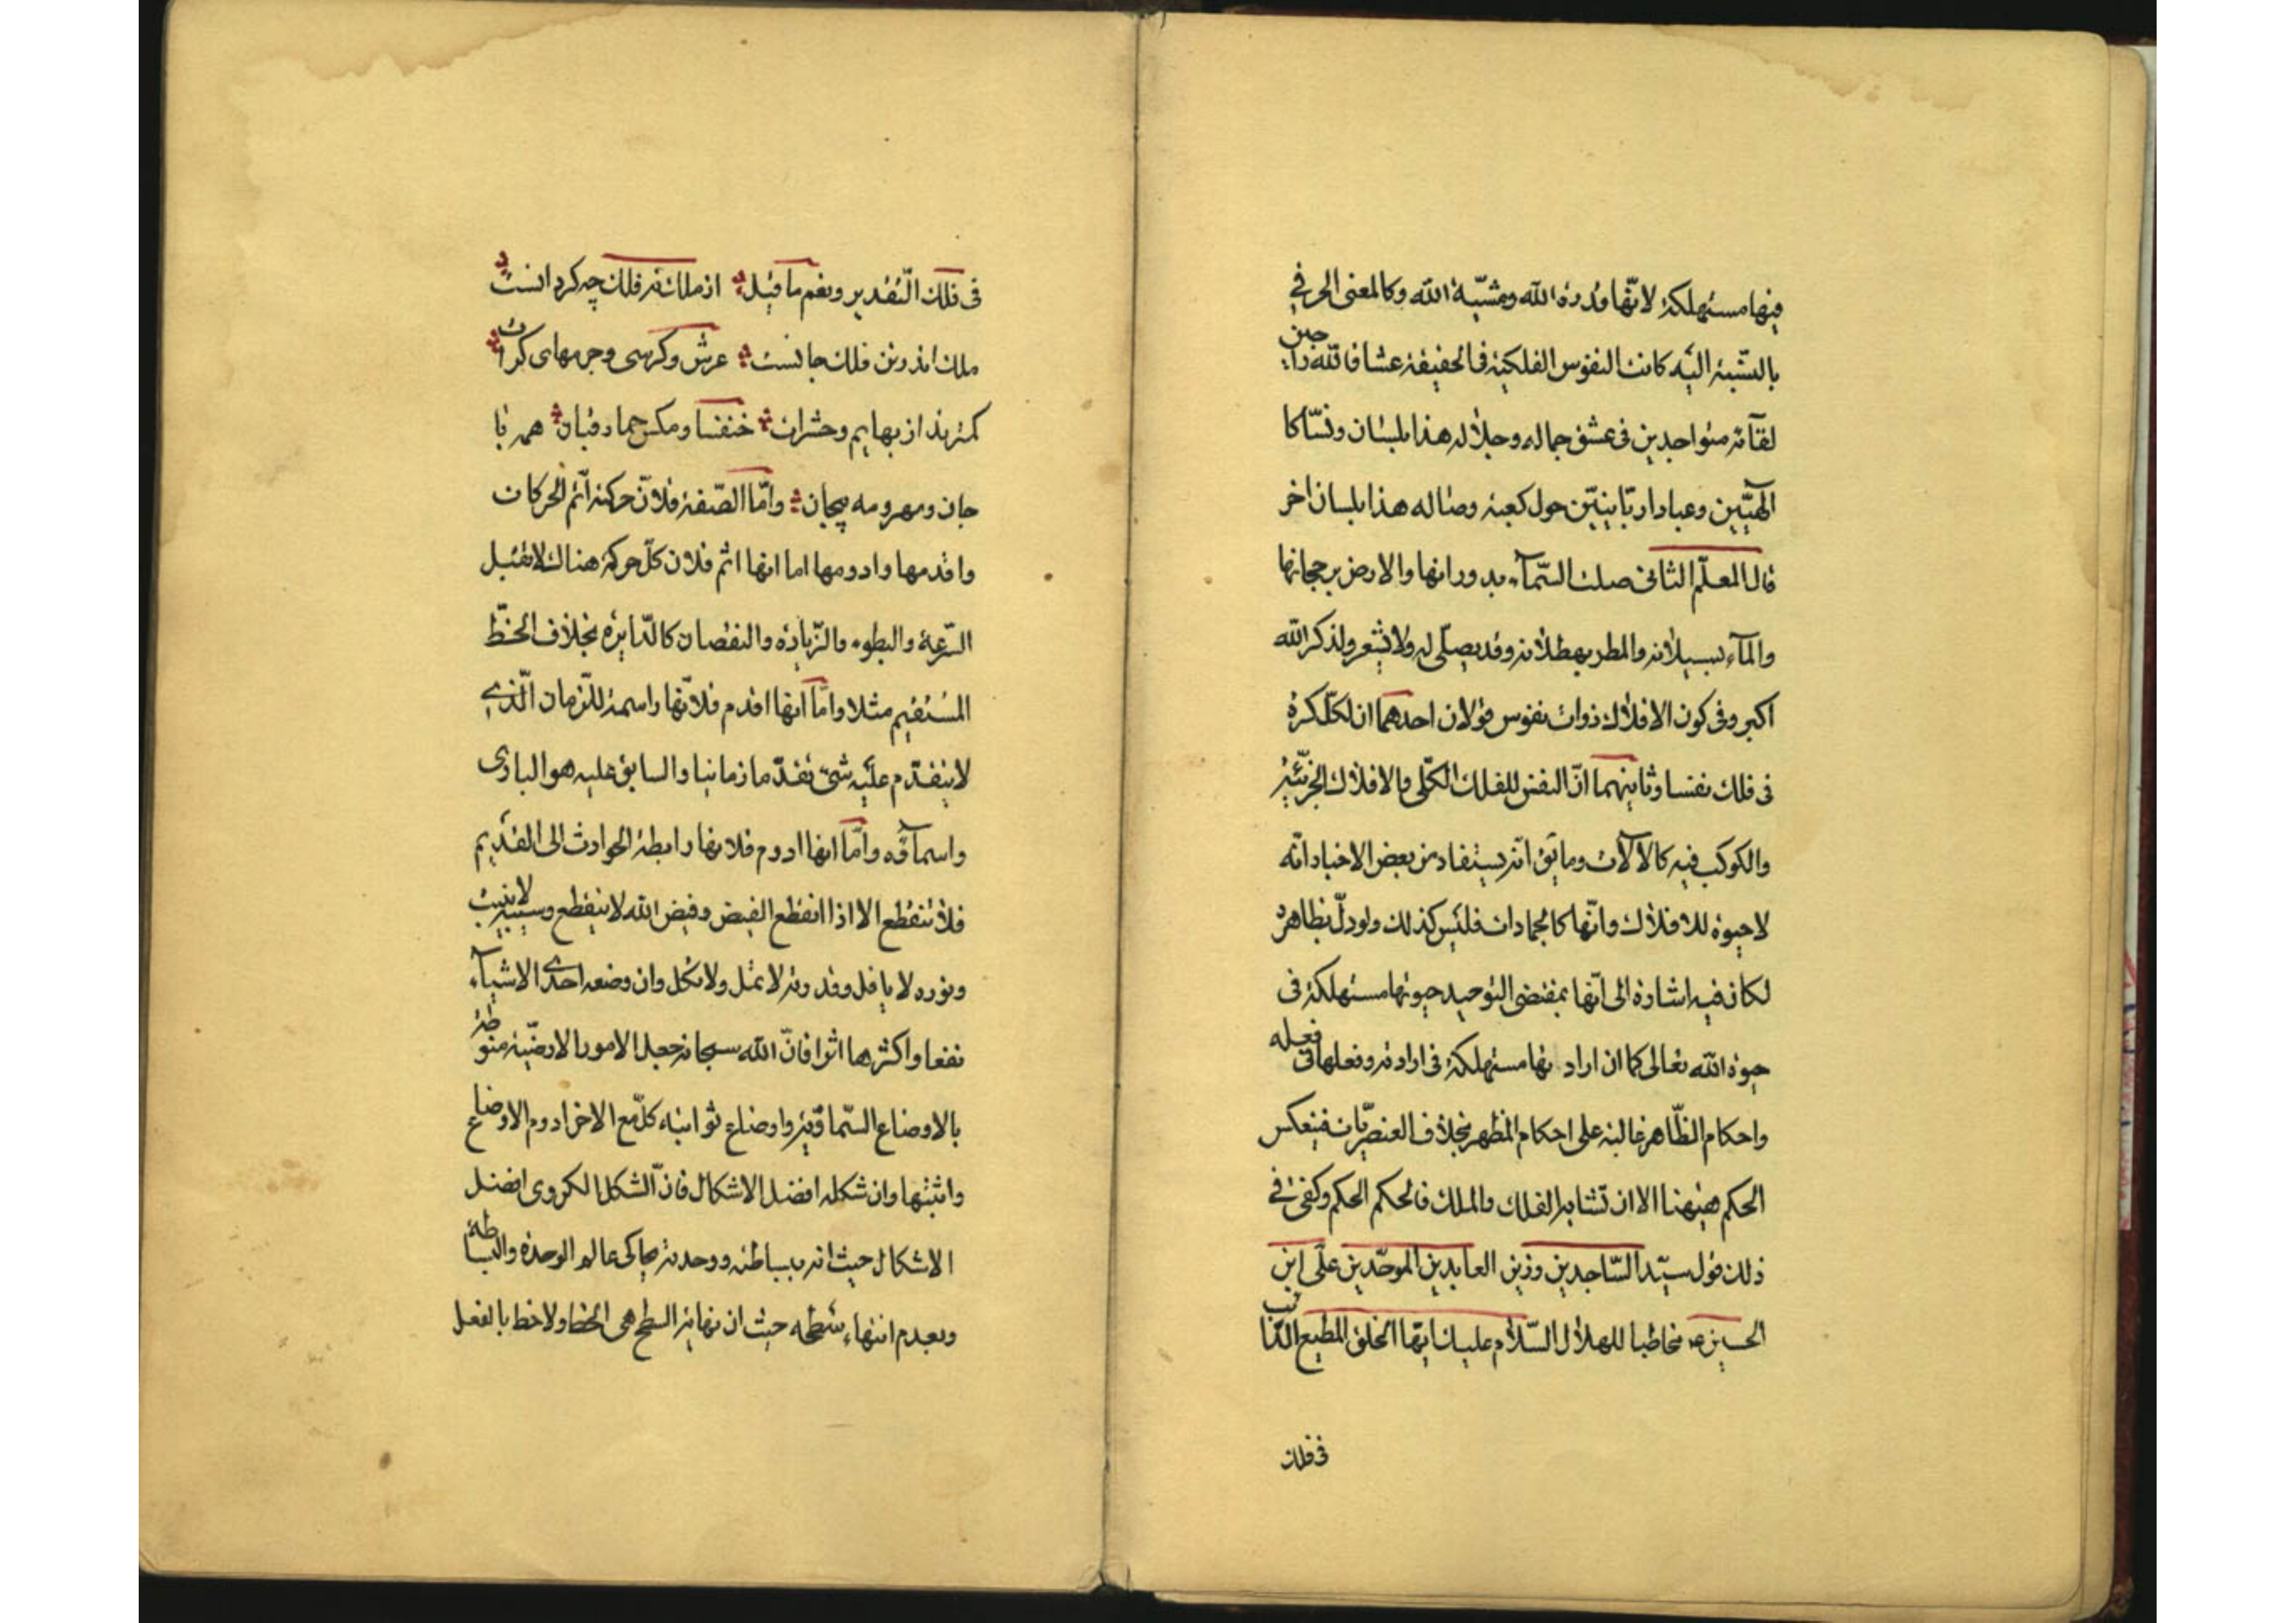 فيها مستهلكة لانّها قدرة الله ومشيّة الله وكالمعنى الحرفي
بالنّسبة اليه كانت النفوس الفلكية فى الحقيقة عشاقا لله راجين
لقآئه متواجدين فى عشق جماله وجلاله هذا بلسان ونسّاكا
الٓهيّين وعبادا ربّانيّين حول كعبة وصاله هذا بلسان اخر
قال المعلّم الثانى صلت السّمآء بدورانها والارض برجحانها
والمآء بسيلانه والمطر بهطلانه وقد يصلّى له ولا يشعر ولذكر الله
اكبر وفى كون الافلاك ذوات نفوس قولان احدهما ان لكلّ كرة
فى فلك نفسا وثانيهما انّ النفس للفلك الكلّى والافلاك الجزئيّة
والكوكب فيه كالآلات وما يق انّه يستفاد من بعض الاخبار انّه
لا حيوة للافلاك وانّها كالجمادات فليس كذلك ولو دلّ بظاهره
لكان فيه اشارة الى انّها بمقتضى التوحيد حيوتها مستهلكة فى
حيوة الله تعالى كما ان اراد تها مستهلكة فى ارادته وفعلها فى فعله
واحكام الظّاهر غالبة على احكام المظهر بخلاف العنصريّات فينعكس
الحكم هيهنا الا ان تشابه الفلك والملك فالحكم الحكم وكفى فى
ذلك قول سيّد السّاجدين وزين العابدين الموحّدين علّى ابن
الحسين ع مخاطبا للهلال السّلام عليك ايّها الخلق المطيع الدّائب
فى فلك
فى فلك التّقدير ونعم ما قيل از ملك نه فلك چه گردانست
ملك اندر تن فلك جانست عرش وكرسى وجرمهاى كرات
كمترند از بهايم وحشرات خنفسا ومكس حمار قبان همه با
جان ومهر ومه بيجان وامّا الصّفة فلانّ حركته اتم الحركات
واقدمها وادومها اما انها اتم فلان كلّ حركة هناك لا تقبل
السّرعة والبطوء والزّيادة والنقصان كالدّايرة بخلاف الخطّ
المستقيم مثلا وامّا انها اقدم فلانّها راسمة للزّمان الّذي
لا يتقدّم عليه شئ تقدّما زمانيا والسابق عليه هو البارى
واسمآؤه وامّا انها ادوم فلانها رابطة الحوادث الى القديم
فلا تنقطع الا اذا انقطع الفيض وفيض الله لا ينقطع وسيبه لا يغيب
ونوره لا يافل وقدرته لا تمل ولا تكل وان وضعه احدى الاشيآء
نفعا واكثرها اثرا فانّ الله سبحانه جعل الامور الارضيّة منوطة
بالاوضاع السّماويّة واوضاع ثوابته كلّ مع الاخر ادوم الاوضاع
واثبتها وان شكله افضل الاشكال فانّ الشكل الكروى افضل
الاشكال حيث انه ببساطته ووحدته يحاكى عالم الوحدة والبساطة
وبعدم انتهاء سطحه حيث ان نهاية السطح هى الخط ولا خط بالفعل